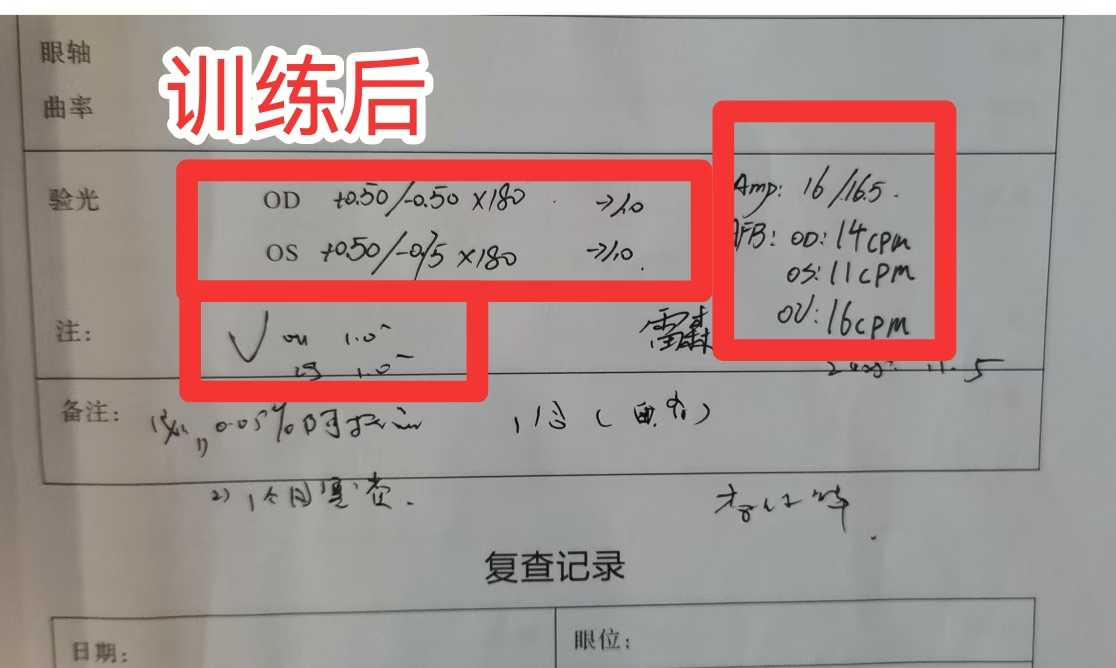 眼轴
训练后
曲率
验光 OD +0.50/-0.50 ×180 →1.0
OS +0.50/-0.75 ×180 →1.0
Amp: 16/16.5.
AFB: OD: 14cpm
OS: 11cpm
OU: 16cpm
注: 1.0⁻
1.0⁻
雷森
备注: 0.05%阿托品 1
2) 1个月复查.
复查记录
日期:
眼位: